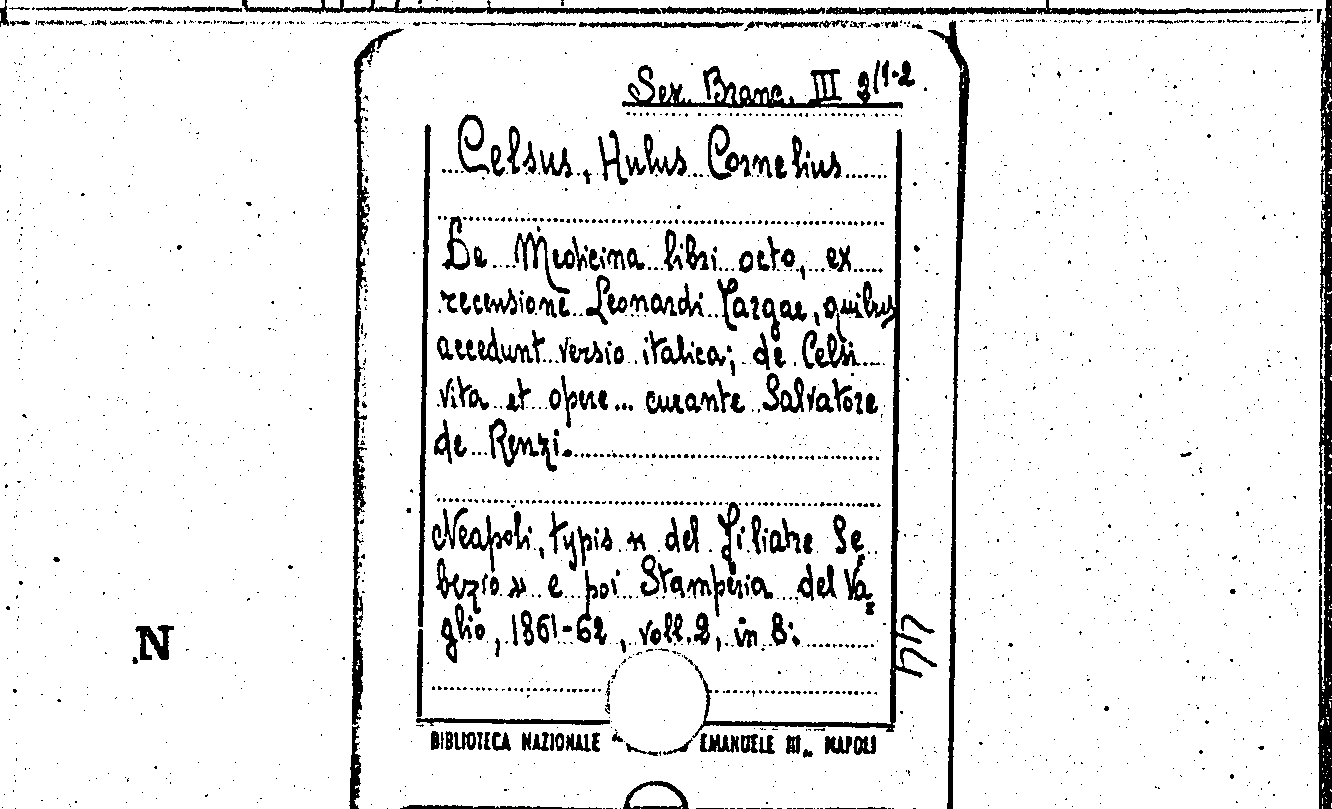 Sez. Branc. III 9/1-2
Celsus, Aulus Cornelius
De Medicina libri octo, ex
recensione Leonardi Targae, quibus
accedunt versio italica; de Celsi
vita et opere... curante Salvatore
de Renzi.
Neapoli, typis « del Filiatre Se
bezio » e poi Stamperia del Va=
glio, 1861-62, voll. 2, in 8:
44
N
BIBLIOTECA NAZIONALE " EMANUELE III„ NAPOLI